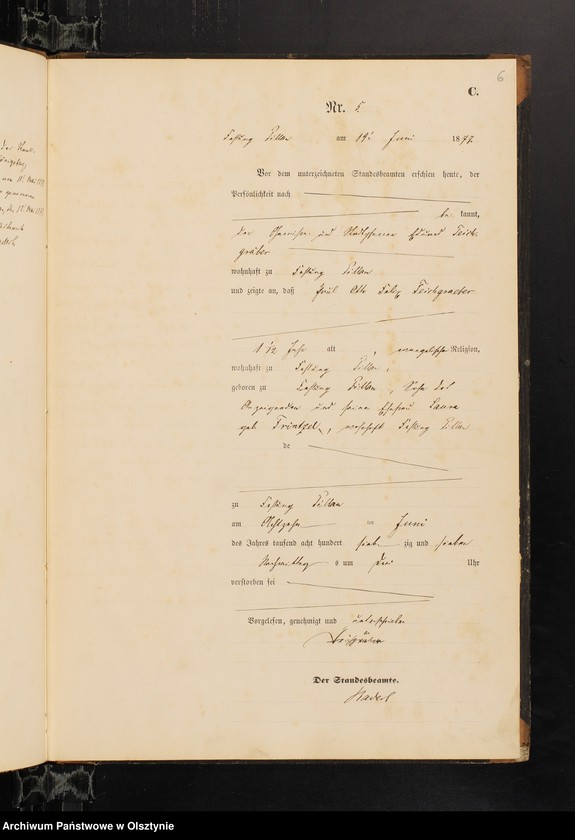 6
C.
Nr. 5
Festung Pillau am 19ten Juni 1877
Vor dem unterzeichneten Standesbeamten erschien heute, der
Persönlichkeit nach
be kannt,
der und Eduard Teich-
gräber
wohnhaft zu Festung Pillau
und zeigte an, daß Paul Otto Felix Teichgraeber
1 1/2 Jahr alt, evangelischer Religion,
wohnhaft zu Festung Pillau,
geboren zu Festung Pillau, Sohn des
Anzeigenden und seiner Ehefrau Laura
geb. Trintzel, wohnhaft Festung Pillau
de
zu Festung Pillau
am Achtzehn ten Juni
des Jahres tausend acht hundert sieben zig und sieben
Nachmittag s um drei Uhr
verstorben sei
Vorgelesen, genehmigt und unterschrieben
Teichgräber
Der Standesbeamte.
Archiwum Państwowe w Olsztynie